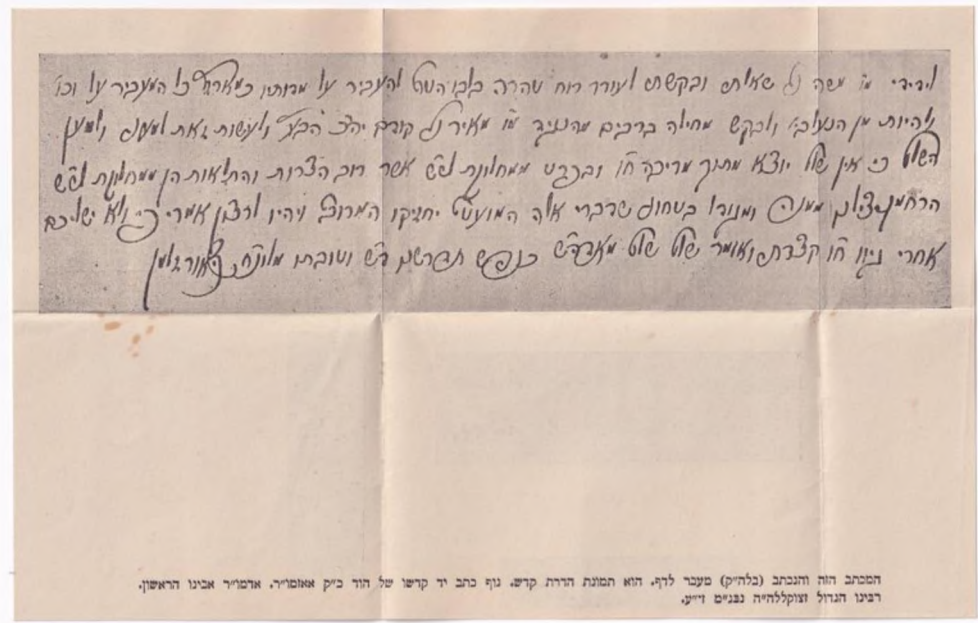 ידידי מו' משה נ"י שאלתי ובקשתי לעורר רוח טהרה בלבו הטוב להעביר על מדותיו כמארז"ל כל המעביר על וכו'
ולהיות מן הנעלבי' ולבקש מחילה ברבים מהנגיד מו' מאיר נ"י קודם יה"כ הבע"ל ולעשות זאת למעני ולמען
השלו' כי אין שלו' יוצא מתוך מריבה ח"ו ובפרט ממחלוקת לש"ש אשר רוב הצרות והתלאות הן ממחלוקת לש"ש
הרחמן יצילנו ממנה ומגודל בטחוני שדברי אלה המועטי' יחזיקו המרובה ויהיו לרצון אמרי פי ולא ישליכם
אחרי גיוו ח"ו קצרתי ואומר שלו' שלו' מאדה"ש כנפש תדרשם וטובתו
המכתב הזה והנכתב (בלה"ק) מעבר לדף, הוא תמונת הדרת קדש, גוף כתב יד קדשו של הוד כ"ק אאזמו"ר, אדמו"ר אבינו הראשון,
רבינו הגדול זצוקללה"ה נבג"ם זי"ע.